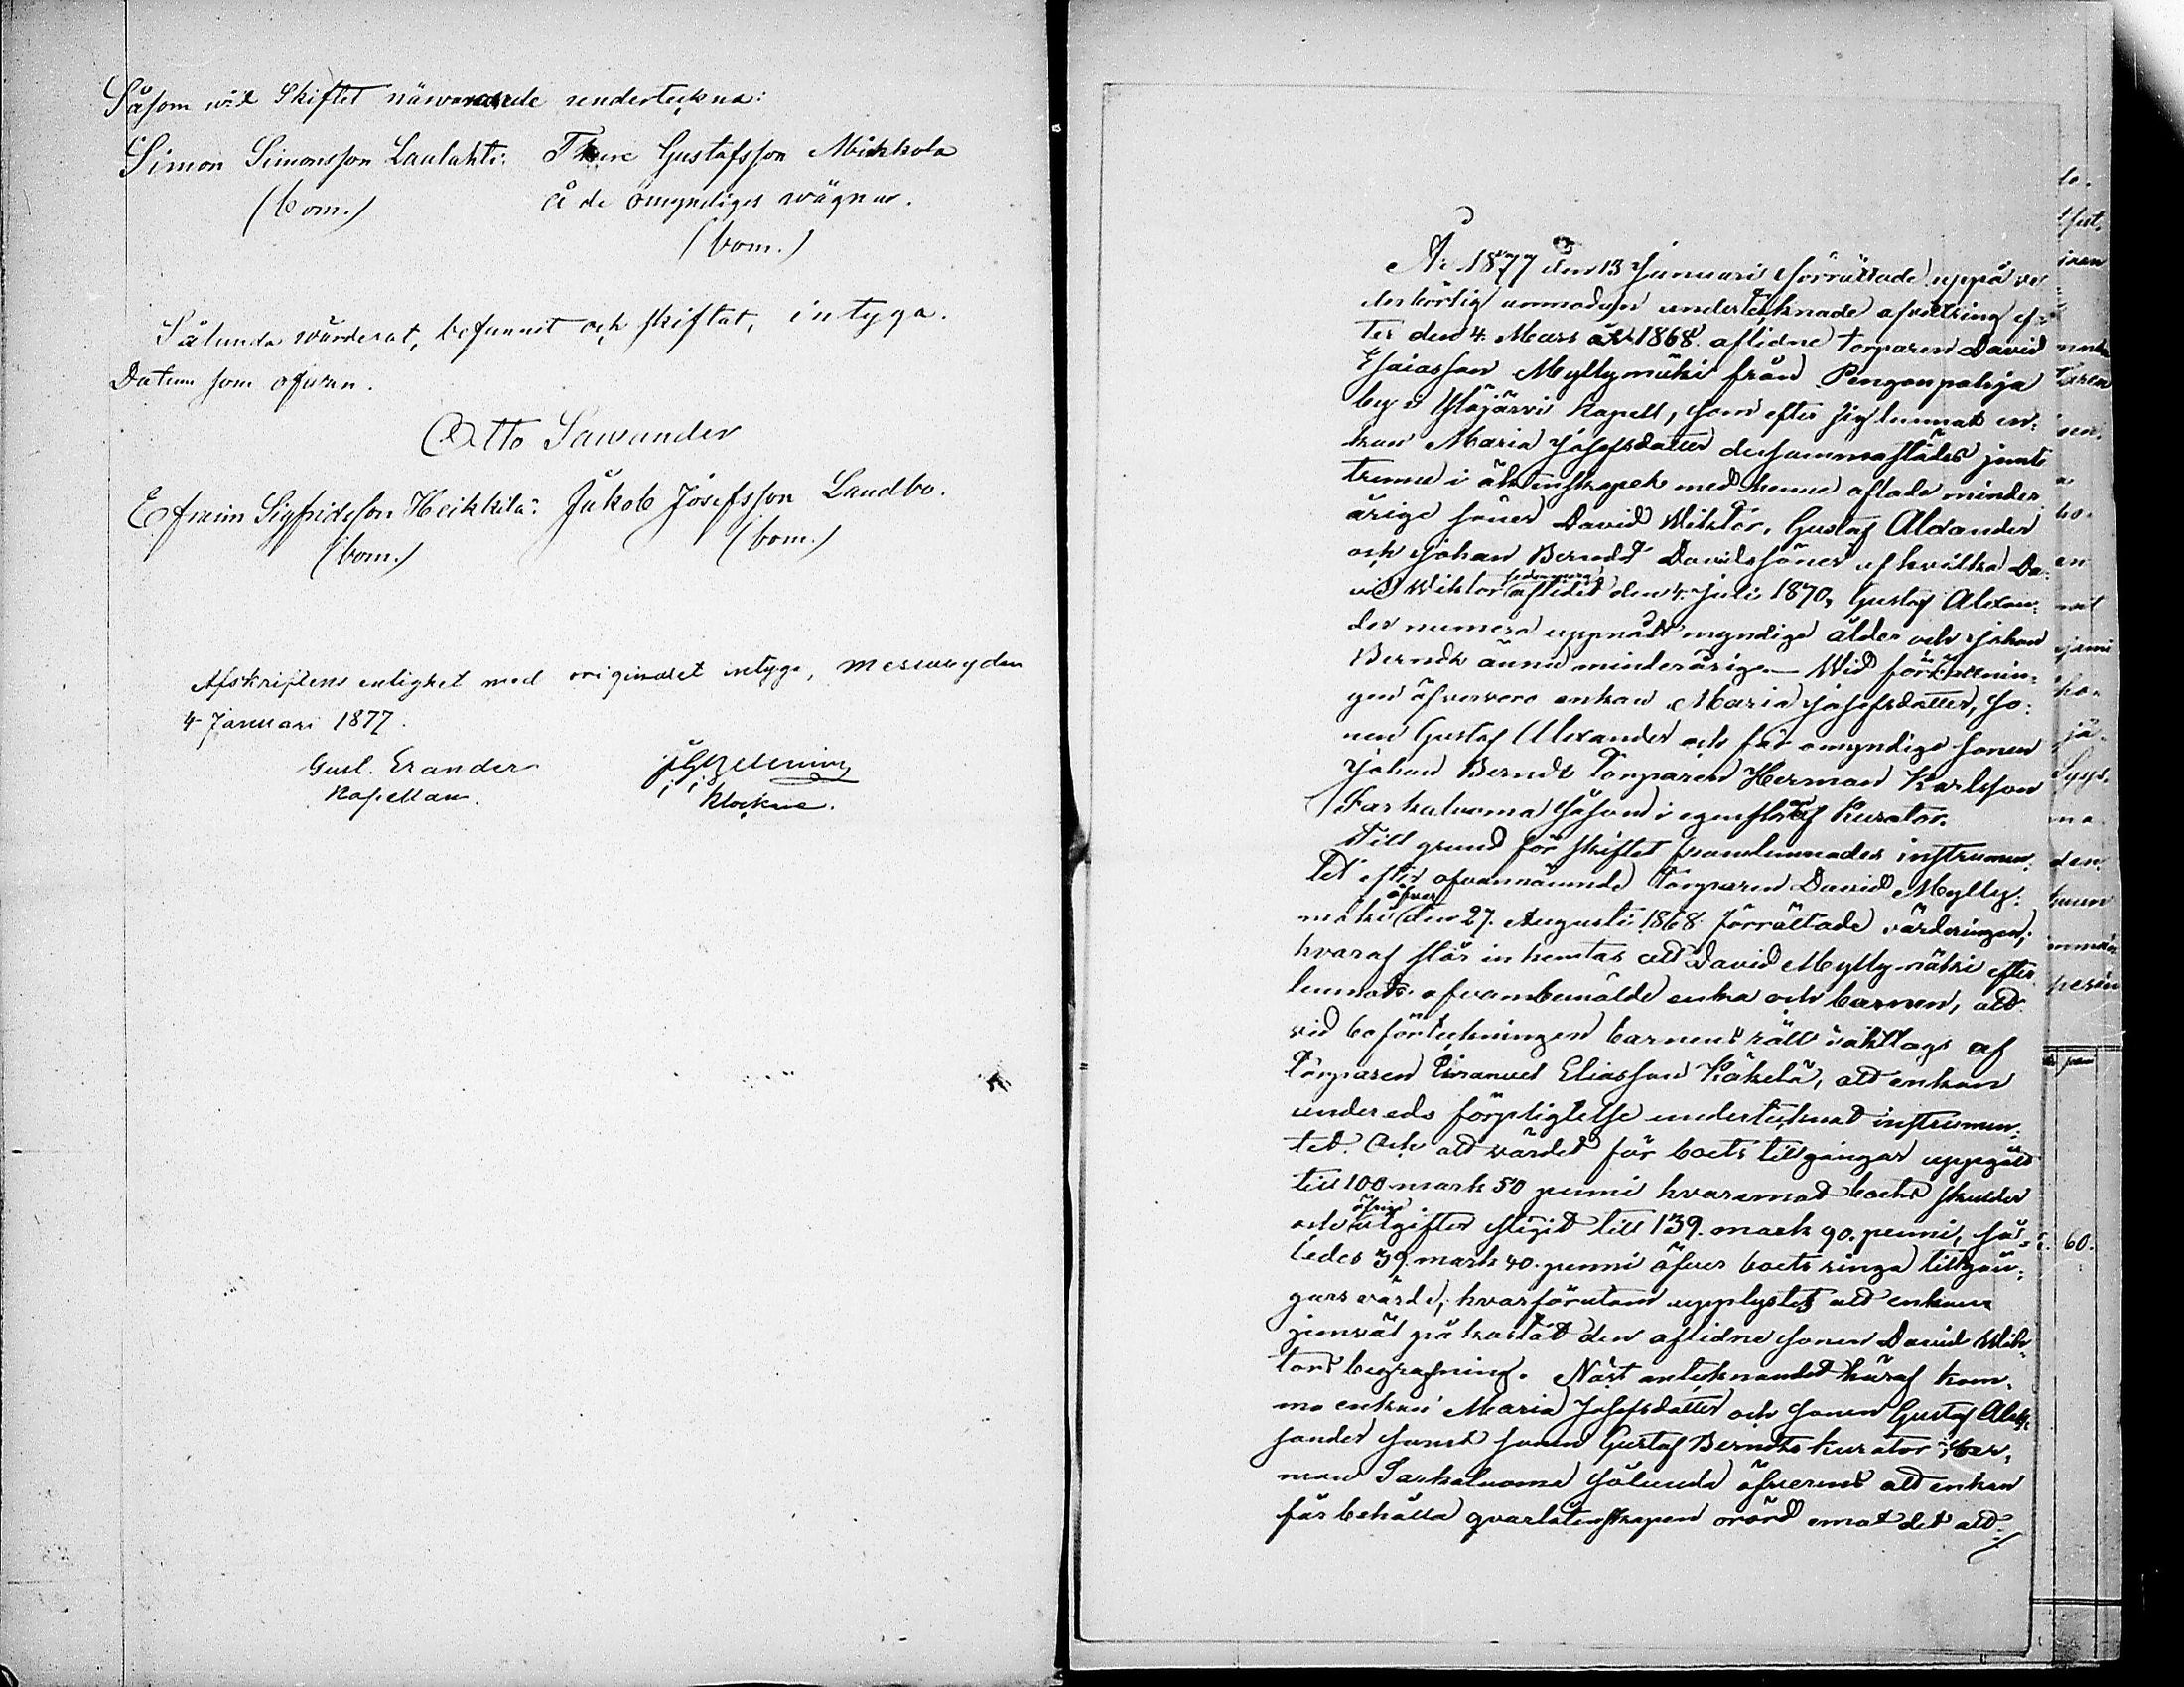 Såsom wid Skiftet närwarande underteckna:
Simon Simonsson Laulahti: Thure Gustafsson Mikkola
(bom.) å de omyndiges wägnar.
(bom.)
Sålunda wärderat, befunnit och skiftat, intyga.
Datum som ofwan.
Otto Sawander
Efraim Sigfridsson Heikkilä: Jakob Josefsson Landbo.
(bom.) (bom.)
Afskriftens enlighet med originalet intyga, Messuby den
4 Januari 1877.
Gust. Erander
Kapellan. Klockare.
År 1877 den 13 Januari förrättade uppå ve
derbörlig anmodan undertecknade afvittring ef-
ter den 4. Mars år 1868. aflidne torparen David
Esaiasson Myllymäki från Pengonpohja
by i Ylöjärvi Kapell, som efter sig lemnat en-
kan Maria Josefsdotter dersammastädes jemte
trenne i äktenskapet med henne aflade minder
årige söner David Wiktor, Gustaf Alexander
och Johan Berndt Davidssöner af hvilka Da-
vid Wiktor sedermera aflidit den 4. Juli 1870, Gustaf Alexan-
der numera uppnått myndige ålder och Johan
Berndt ännu minderårige. — Wid förrättnin-
gen öfvervoro enkan Maria Josefsdotter, so-
nen Gustaf Alexander och för omyndige sonen
Johan Berndt Torparen Herman Karlsson
Sarkaluoma såsom i egenskap af Kurator.
Till grund för skiftet framlemnades instrumen-
tet öfver efter ofvannämnde Torparen David Mylly-
mäki den 27. Augusti 1868. förrättade värderingen,
hvaraf står inhemtas att David Myllymäki efter
lemnat ofvanbemälde enka och barnen, att
vid boförteckningen barnens rätt iakttogs af
Torparen Emanuel Eliasson Käkelä, att enkan
under eds förpligtelse undertecknat instrumen-
tet. Och att värdet för boets tillgångar uppgått
till 100 mark 50 penni hvaremot boets skulder
och öfrige utgifter stigit till 139. mark 90. penni, så-
ledes 39. mark 40. penni öfver boets ringa tillgån-
gars värde, hvarförutom upplystes att enkan
jemväl på kostat den aflidne sonen David Wik-
tors begrafning. Näst antecknandet häraf kom-
mo enkan Maria Josefsdotter och sonen Gustaf Alek-
sander samt sonen Gustaf Berndts kurator Her-
man Sarkaluoma sålunda öfverens att enkan
får behålla qvarlåtenskapen orörd emot det att
60.